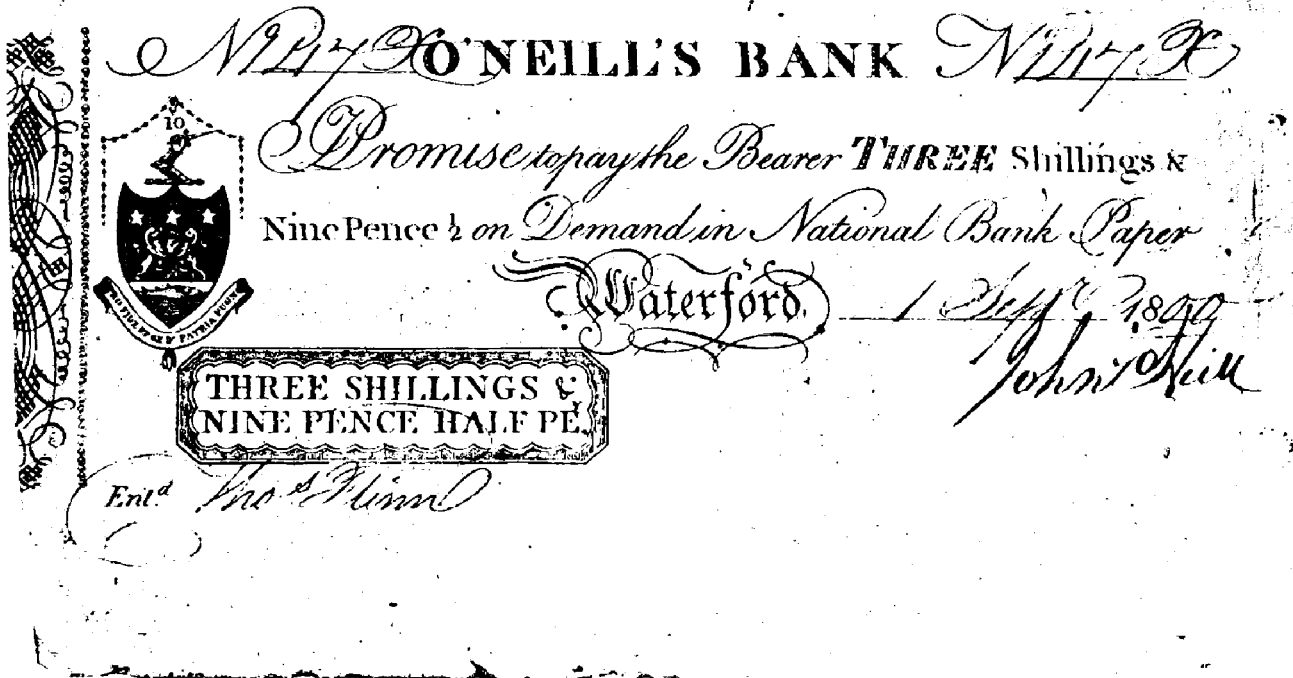 O'NEILL'S BANK
10
I Promise to pay the Bearer THREE Shillings &
Nine Pence ½ on Demand in National Bank Paper
Waterford. 1 Sept.r 1800
John O'Neill
THREE SHILLINGS &
NINE PENCE HALF PE.
Ent.d Tho.s Flinn